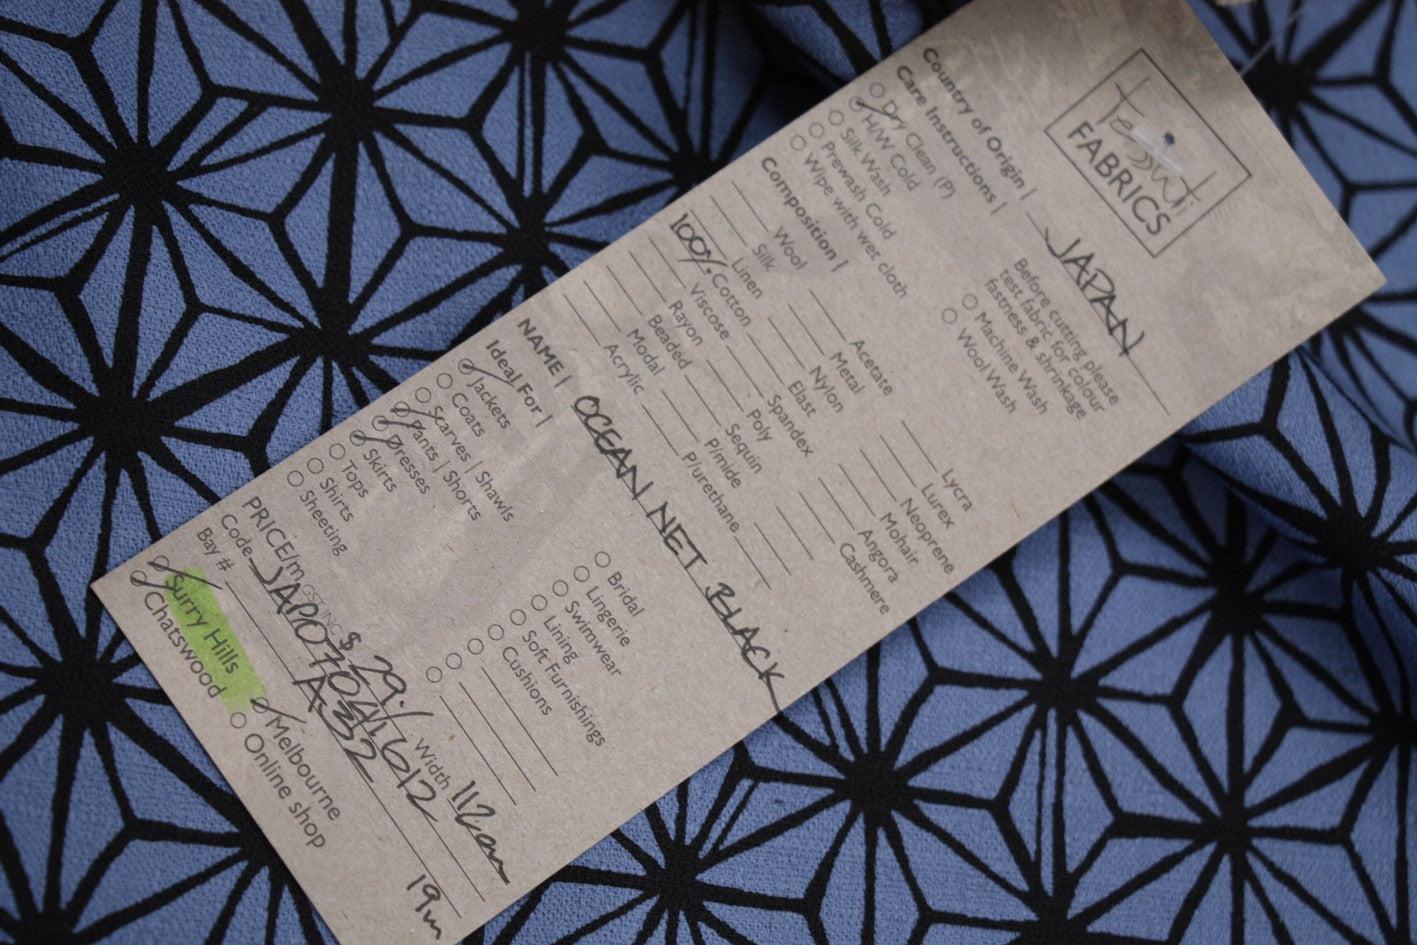 tessuti
FABRICS
Country of Origin | JAPAN
Care Instructions |
Dry Clean (P)
H/W Cold
Silk Wash
Prewash Cold
Wipe with wet cloth
Before cutting please
test fabric for colour
fastness & shrinkage
Machine Wash
Wool Wash
Composition |
Wool
Silk
Linen
100% Cotton
Viscose
Rayon
Beaded
Modal
Acrylic
Acetate
Metal
Nylon
Elast
Spandex
Poly
Sequin
P/mide
P/urethane
Lycra
Lurex
Neoprene
Mohair
Angora
Cashmere
NAME | OCEAN NET BLACK
Ideal For |
Jackets
Coats
Scarves | Shawls
Pants | Shorts
Dresses
Skirts
Tops
Shirts
Sheeting
Bridal
Lingerie
Swimwear
Lining
Soft Furnishings
Cushions
PRICE/m GST INC $ 29.- Width 112cm
Code JAP07041612
Bay # A332
Surry Hills
Chatswood
Melbourne
Online shop
19m